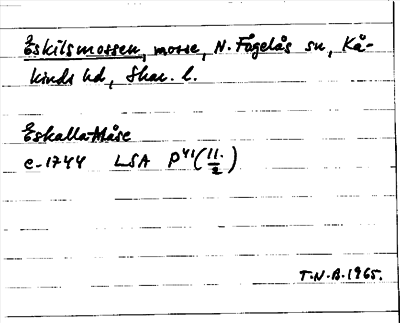 Eskilsmossen, mosse, N. Fågelås sn, Kå-
kinds hd, Skar. l.
Eskalla Måse
c. 1744 LSA P41 (11./2)
T.N.B. 1965.